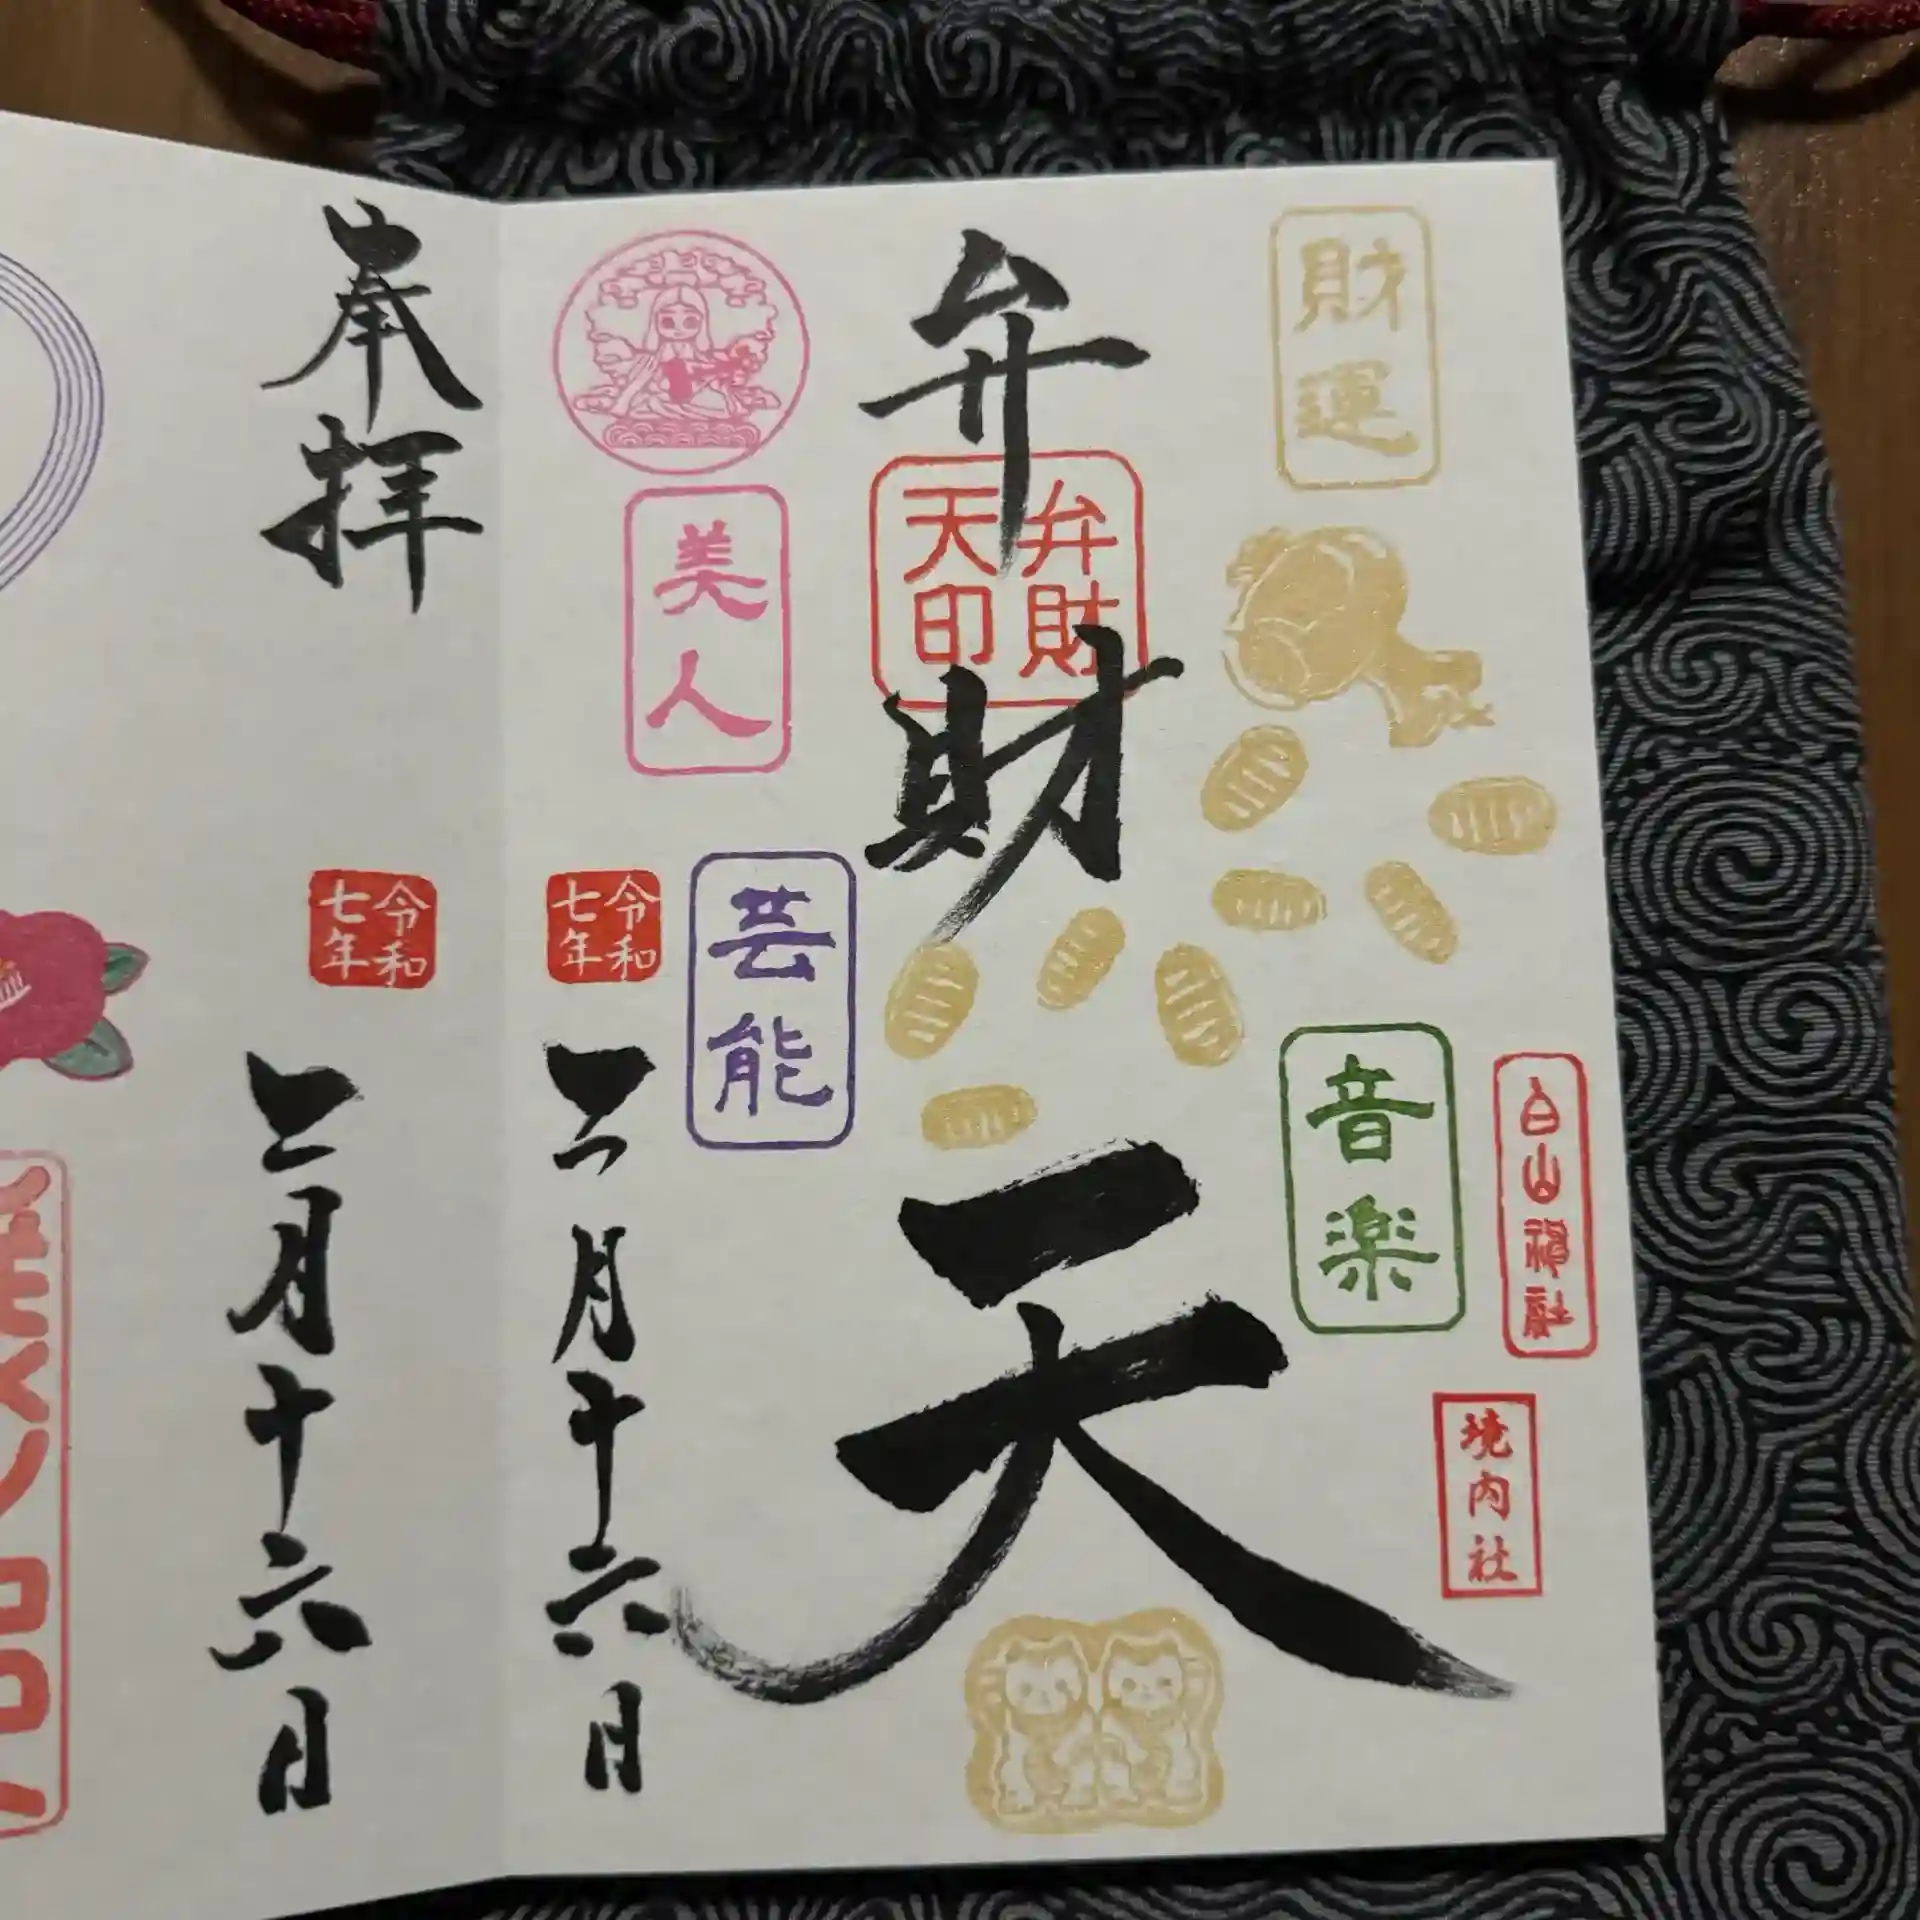 財運
音楽
白山神社
境内社
弁財天
弁財
天印
美人
芸能
令和
七年
二月十六日
奉拝
令和
七年
二月十六日